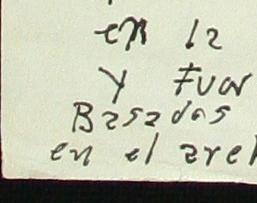 en la
y Fuer
Basadas
en el arel